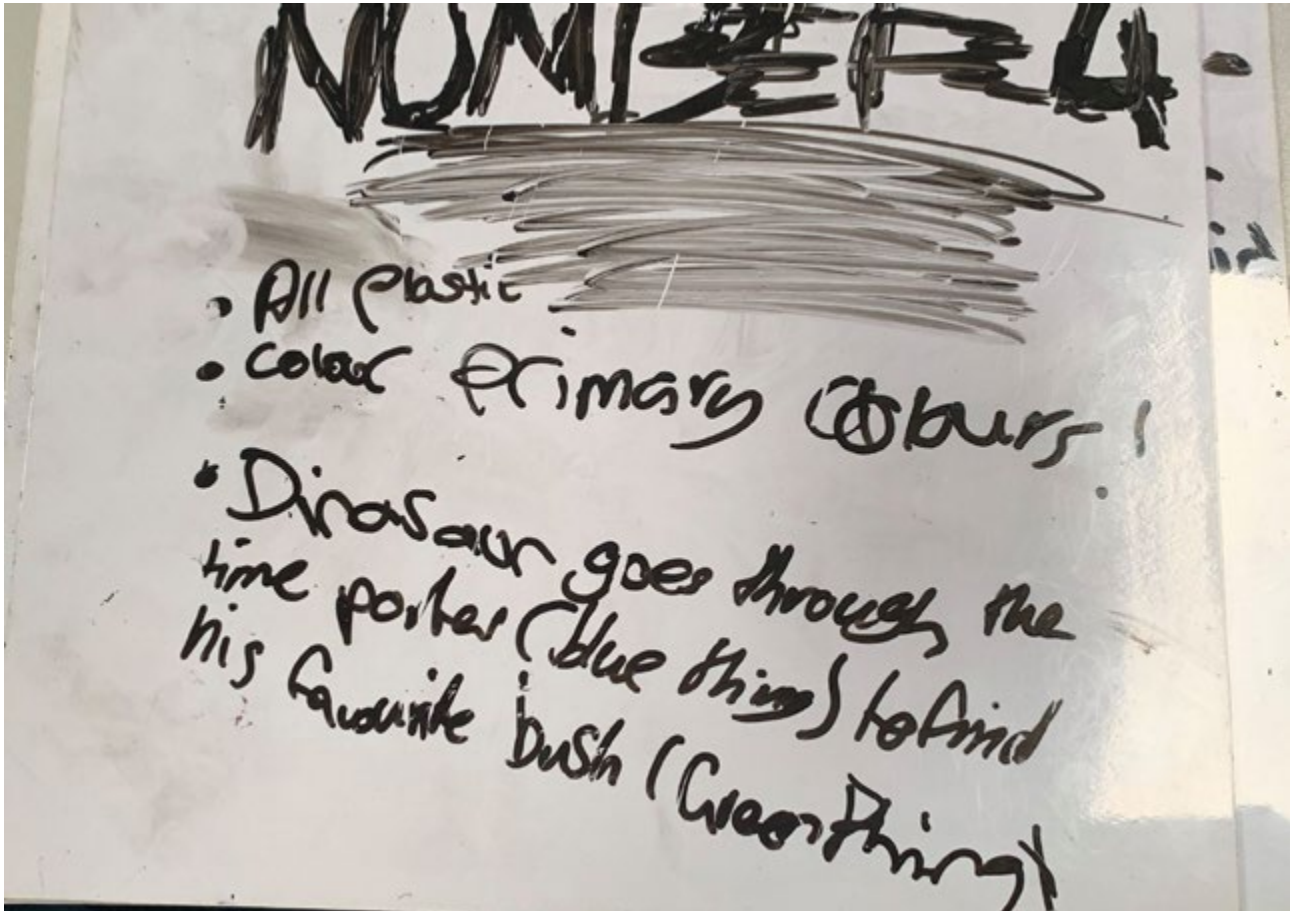 NUMBER 4
• All plastic
• colour primary colours!
• Dinasaur goes through the
time porter (blue thing) to find
his favourite bush (Green thing)